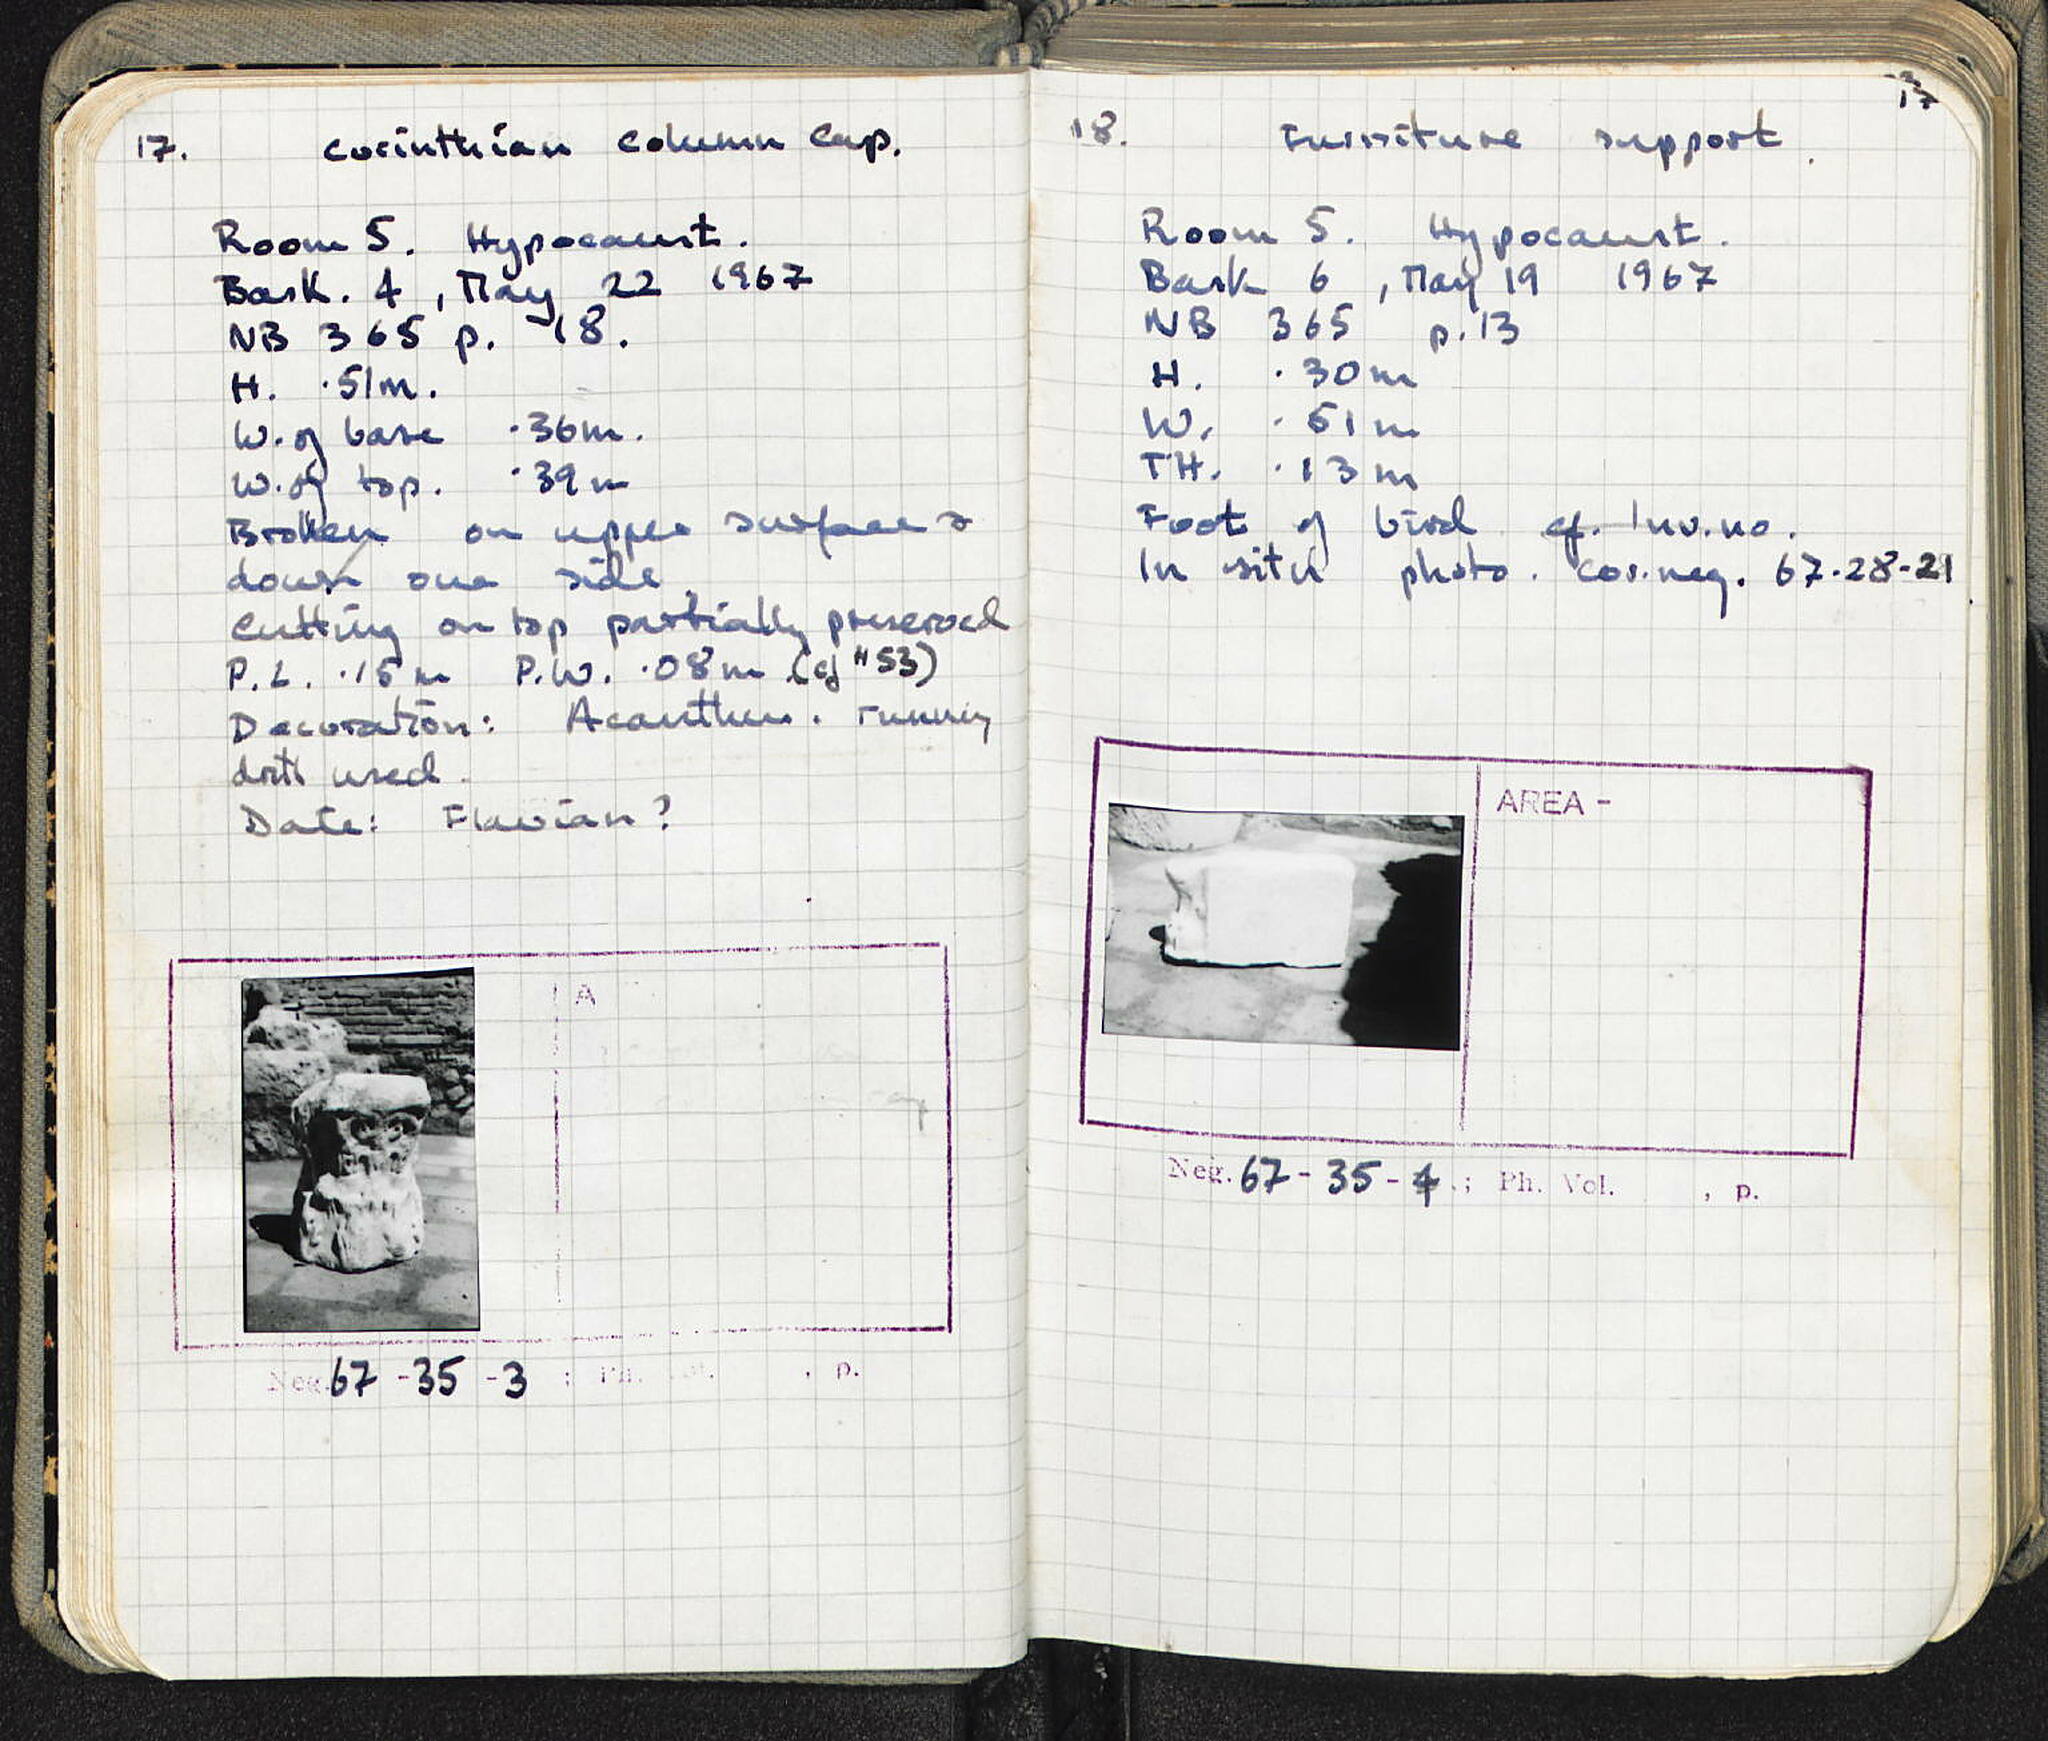 17. Corinthian Column Cap.
Room 5. Hypocaust.
Bask. 4, May 22 1967
NB 365 p. 18.
H. .51m.
W. of base .36m.
W. of top. .39m
Broken on upper surface &
down one side.
Cutting on top partially preserved
P.L. .15m P.W. .08m (cf #53)
Decoration: Acanthus. running
drill used.
Date: Flavian?
A
Neg. 67-35-3 ; Ph. , p.
18. Furniture support.
Room 5. Hypocaust.
Bask 6, May 19 1967
NB 365 p.13
H. .30m
W. .51m
TH. .13m
Foot of bird cf. Inv. no.
In situ photo. Cor. neg. 67-28-21
AREA -
Neg. 67-35-4.; Ph. Vol. , p.